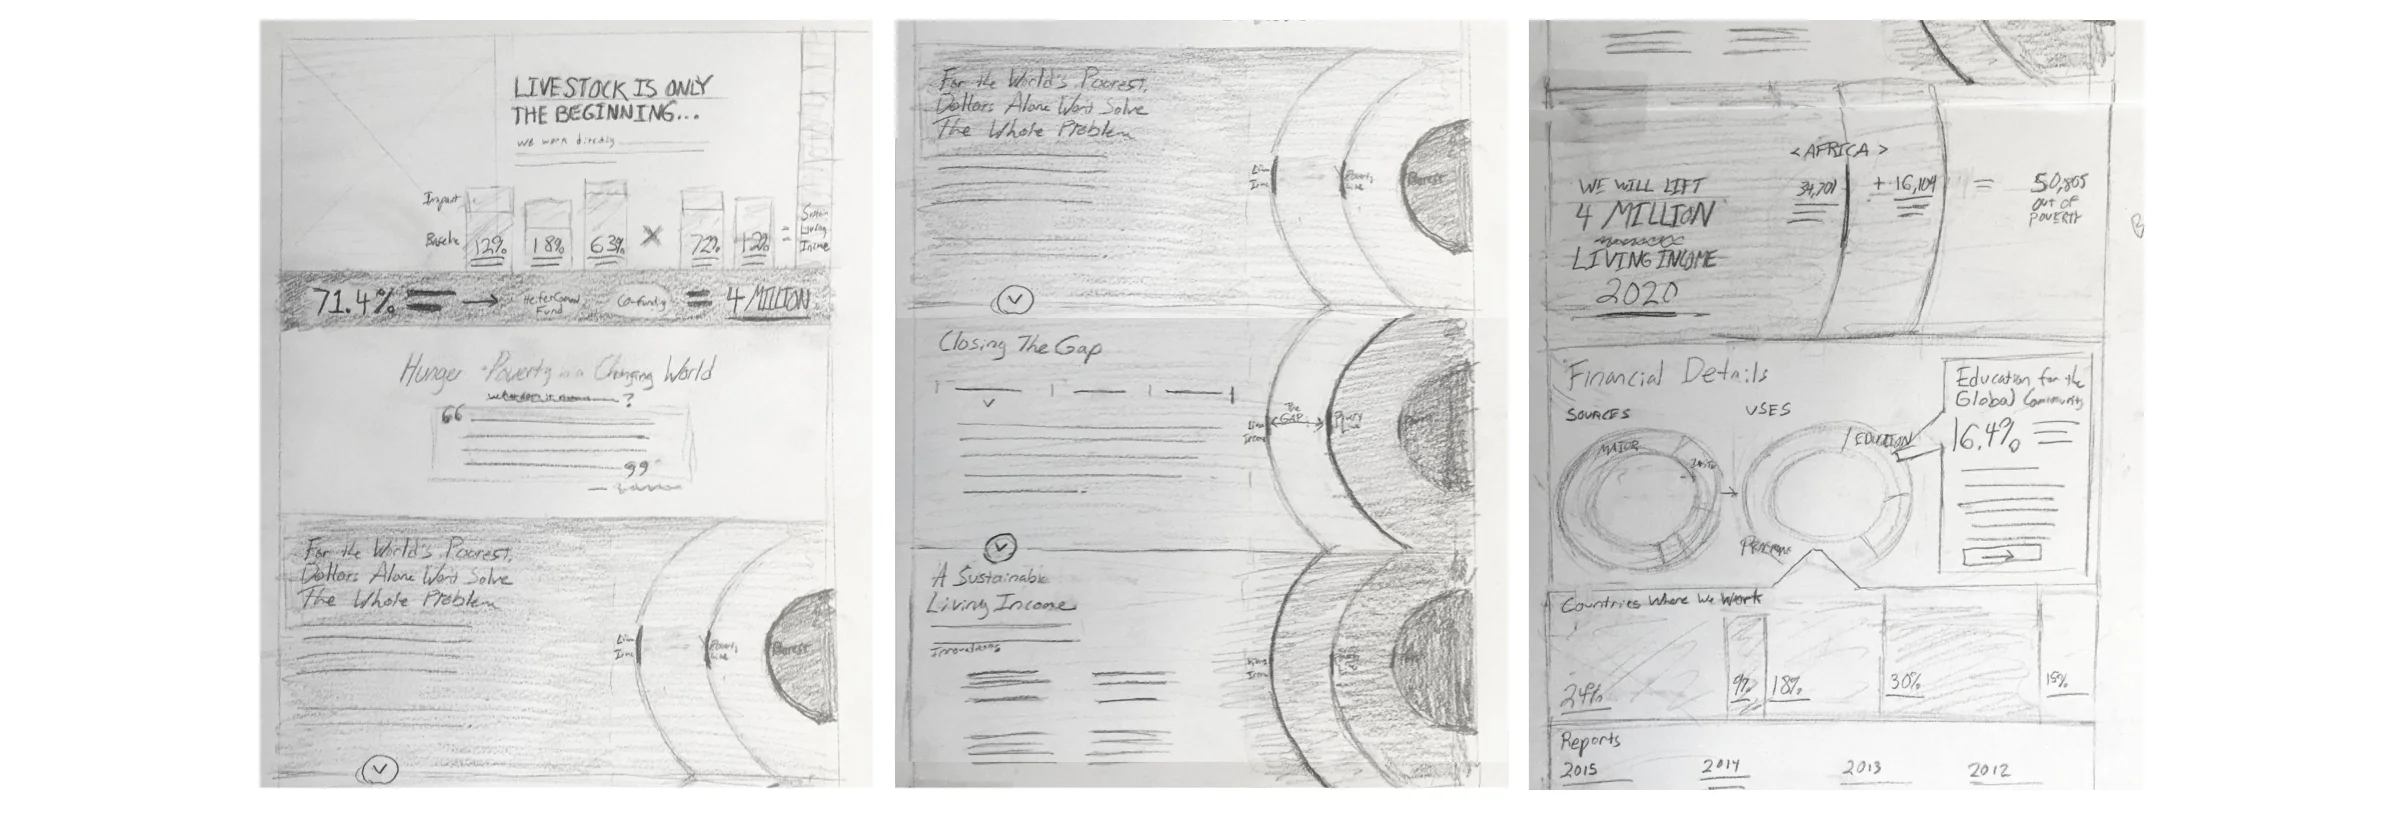 LIVESTOCK IS ONLY
THE BEGINNING...
we work directly
Impact
12%
18%
63%
X
72%
12%
=
Living
Income
71.4%
→
Fund
Co-Funding
=
4 MILLION
Hunger + Poverty in a Changing World
?
“
”
For the World's Poorest,
Dollars Alone Wont Solve
The Whole Problem
Poverty
Line
Poorest
For the World's Poorest,
Dollars Alone Wont Solve
The Whole Problem
Poverty
Line
Poorest
Closing The Gap
The
GAP
A Sustainable
Living Income
Innovations
Living
Income
<AFRICA>
WE WILL LIFT
4 MILLION
LIVING INCOME
2020
34,701
+ 16,104
=
50,805
OUT OF
POVERTY
Financial Details
SOURCES
USES
MAJOR
EDUCATION
Education for the
Global Community
16.4%
→
Countries Where We Work
24%
9%
18%
30%
15%
Reports
2015
2014
2013
2012